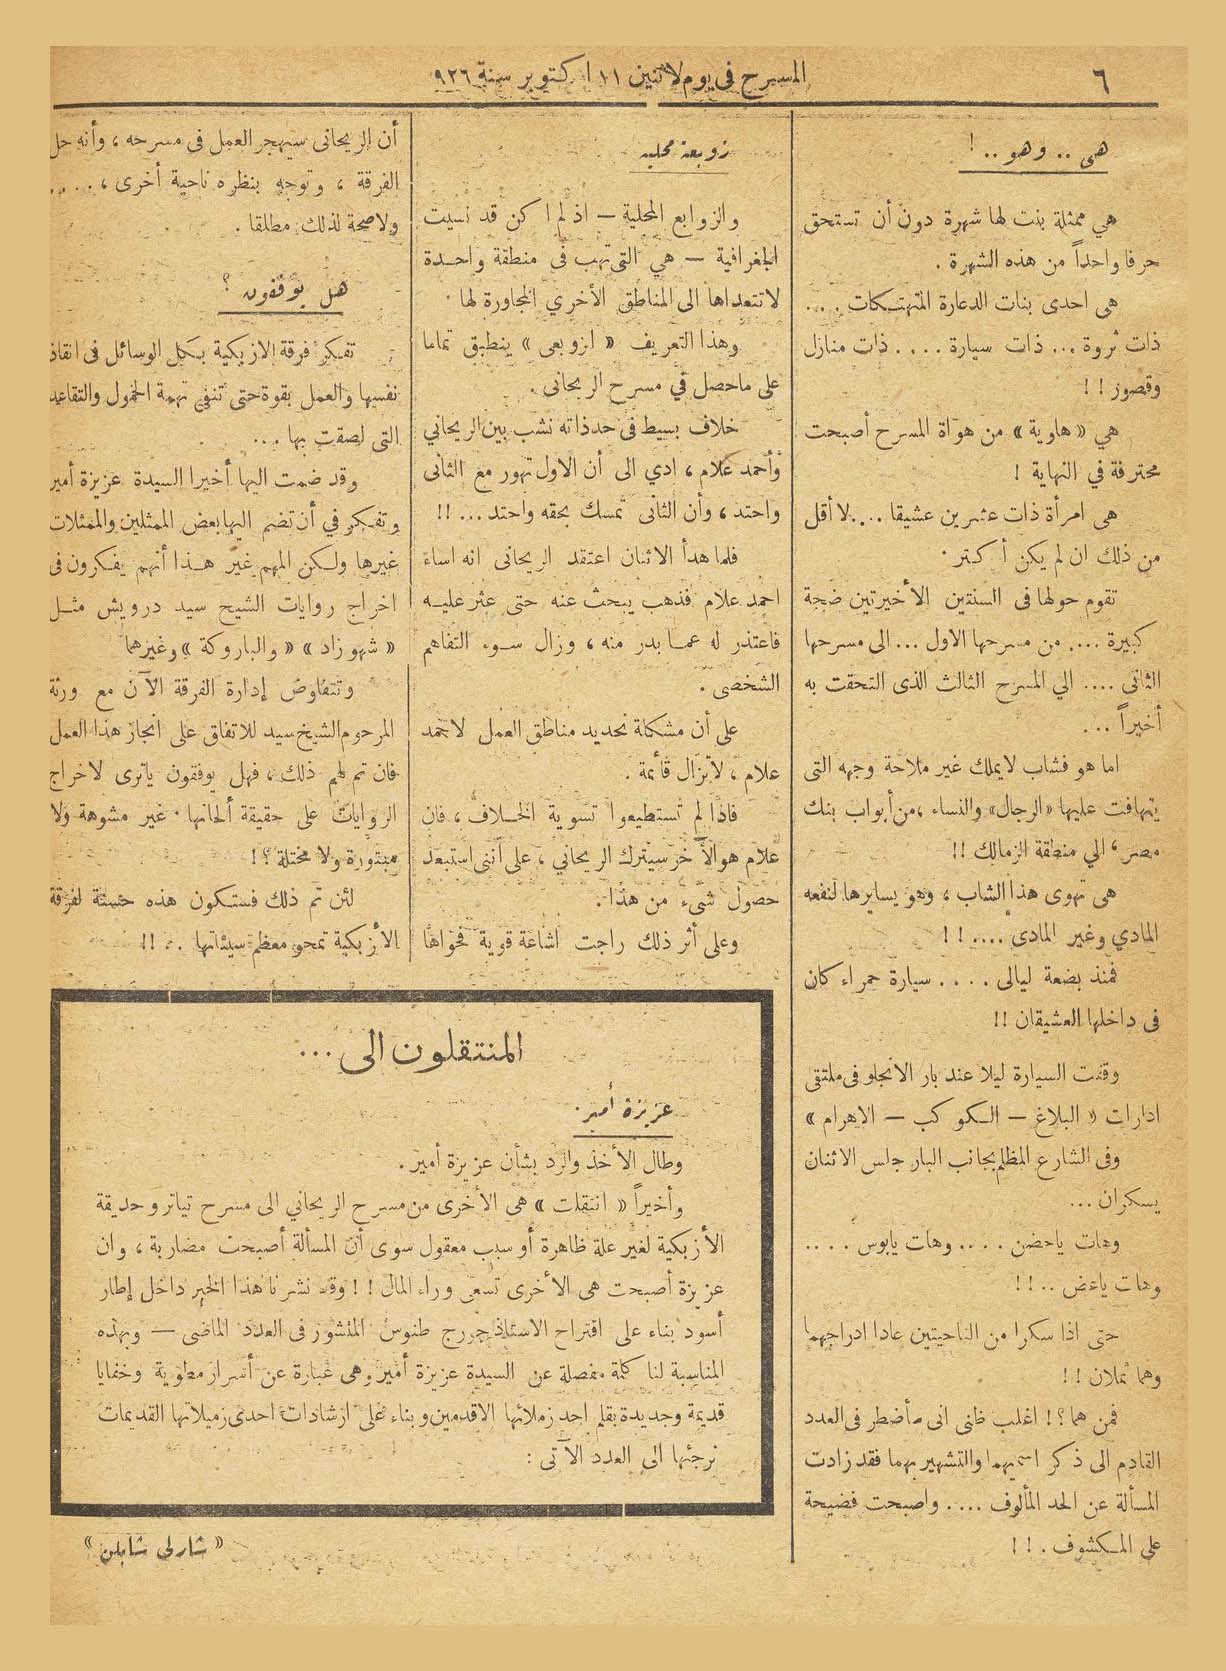 ٦
المسرح في يوم لاثنين ١١ اكتوبر سنة ٩٢٦
هى .. وهو .. !
هي ممثلة بنت لها شهرة دون أن تستحق
حرفا واحداً من هذه الشهرة .
هى احدى بنات الدعارة المتهتكات ....
ذات ثروة ... ذات سيارة .... ذات منازل
وقصور !!
هي « هاوية » من هواة المسرح أصبحت
محترفة في النهاية !
هى امرأة ذات عشرين عشيقا .... لا أقل
من ذلك ان لم يكن أكثر .
تقوم حولها فى السنتين الأخيرتين ضجة
كبيرة .... من مسرحها الاول ... الى مسرحها
الثانى .... الي المسرح الثالث الذى التحقت به
أخيراً ...
اما هو فشاب لايملك غير ملاحة وجهه التى
يتهافت عليها «الرجال» والنساء ، من أبواب بنك
مصر ، الي منطقة الزمالك !!
هى تهوى هذا الشاب ، وهو يسايرها لنفعه
المادي وغير المادى .... !!
فمنذ بضعة ليالى .... سيارة حمراء كان
فى داخلها العشيقان !!
وقفت السيارة ليلا عند بار الانجلو فى ملتقى
ادارات « البلاغ — الكوكب — الاهرام »
وفى الشارع المظلم بجانب البار جلس الاثنان
يسكران ...
وهات ياحضن .... وهات يابوس ....
وهات ياعض .. !!
حتى اذا سكرا من الناحيتين عادا ادراجهما
وهما ثملان !!
فمن هما ؟! اغلب ظنى انى سأضطر فى العدد
القادم الى ذكر اسميهما والتشهير بهما فقد زادت
المسألة عن الحد المألوف .... واصبحت فضيحة
على المكشوف . !!
زوبعة محلية
والزوابع المحلية — اذ لم اكن قد نسيت
الجغرافية — هي التى تهب فى منطقة واحدة
لاتتعداها الى المناطق الأخري المجاورة لها .
وهذا التعريف « الزوبعى » ينطبق تماما
على ماحصل في مسرح الريحانى .
خلاف بسيط فى حد ذاته نشب بين الريحاني
وأحمد علام ، ادي الى أن الاول تهور مع الثانى
واحتد ، وأن الثانى تمسك بحقه واحتد ... !!
فلما هدأ الاثنان اعتقد الريحانى انه اساء
احمد علام فذهب يبحث عنه حتى عثر عليه
فاعتذر له عما بدر منه ، وزال سوء التفاهم
الشخصى .
على أن مشكلة تحديد مناطق العمل لاحمد
علام ، لاتزال قائمة .
فاذا لم تستطيعوا تسوية الخلاف ، فان
علام هو الآخر سيترك الريحاني ، على أننى استبعد
حصول شىء من هذا .
وعلى أثر ذلك راجت اشاعة قوية فحواها
أن الريحانى سيهجر العمل فى مسرحه ، وأنه حل
الفرقة ، وتوجه بنظره ناحية أخرى ، ....
ولاصحة لذلك مطلقا .
هل يوفقون ؟
تفكر فرقة الازبكية بكل الوسائل فى انقاذ
نفسها والعمل بقوة حتى تنفي تهمة الخمول والتقاعد
التى لصقت بها ...
وقد ضمت اليها أخيرا السيدة عزيزة أمير
وتفكر في أن تضم اليها بعض الممثلين والممثلات
غيرها ولكن المهم غير هذا أنهم يفكرون فى
اخراج روايات الشيخ سيد درويش مثل
« شهوزاد » « والباروكة » وغيرهما
وتتفاوض إدارة الفرقة الآن مع ورثة
المرحوم الشيخ سيد للاتفاق على انجاز هذا العمل
فان تم لهم ذلك ، فهل يوفقون ياترى لاخراج
الروايات على حقيقة ألحانها . غير مشوهة ولا
مبتورة ولا مختلة ؟!
لئن تم ذلك فستكون هذه حسنة لفرقة
الأزبكية تمحو معظم سيئاتها .. !!
المنتقلون الى ...
عزيزة أمير .
وطال الأخذ والرد بشأن عزيزة أمير .
وأخيراً « انتقلت » هى الأخرى من مسرح الريحاني الى مسرح تياترو حديقة
الأزبكية لغير علة ظاهرة أو سبب معقول سوى أن المسألة أصبحت مضاربة ، وان
عزيزة أصبحت هى الأخرى تسعى وراء المال !! وقد نشرنا هذا الخبر داخل إطار
أسود بناء على اقتراح الاستاذ جورج طنوس المنشور فى العدد الماضى — وبهذه
المناسبة لنا كلمة مفصلة عن السيدة عزيزة أمير وهى عبارة عن أسرار مطوية وخفايا
قديمة وجديدة بقلم احد زملائها الاقدمين وبناء على ارشادات احدى زميلاتها القديمات
نرجئها الى العدد الآتى :
« شارلى شابلن »